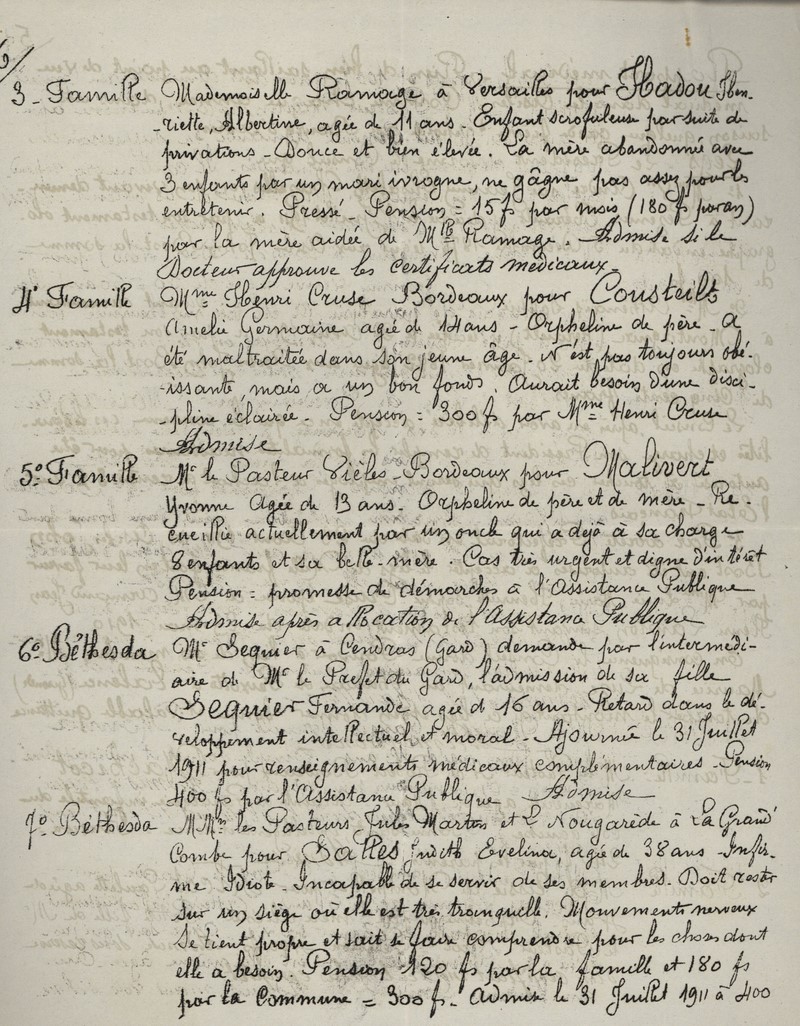 3 - Famille Mademoiselle Ramage à Versailles pour Hadou Hen-
-riette, Albertine, agée de 11 ans - Enfant scrofuleuse par suite de
privations - Douce et bien élevée. La mère abandonnée avec
3 enfants par un mari ivrogne, ne gâgne pas assez pour les
entretenir. Pressé - Pension = 15 fs par mois (180 fs par an)
par la mère aidée de Mlle Ramage. Admise si le
Docteur approuve les certificats médicaux.
4° Famille Mme Henri Cruse Bordeaux pour Consteilt
Amelie Germaine agée de 14 ans - Orpheline de père - a
été maltraitée dans son jeune âge. N'est pas toujours obé-
-issante, mais a un bon fonds. Aurait besoin d'une disci-
-pline éclairée. Pension = 300 fs par Mme Henri Cruse
Admise
5° Famille Mr le Pasteur Vièles - Bordeaux pour Malivert
Yvonne agée de 13 ans. Orpheline de père et de mère - Re-
cueillie actuellement par un oncle qui a dejà à sa charge
8 enfants et sa belle-mère. Cas très urgent et digne d'intérêt
Pension = promesse de démarches à l'Assistance Publique
Admise après allocation de l'Assistance Publique
6° Béthesda Mr Seguier à Cendras (Gard) demande par l'intermédi-
aire de Mr le Prefet du Gard, l'admission de sa fille
Seguier Fernande agée d 16 ans - Retard dans le dé-
veloppement intellectuel et moral - Ajournée le 31 Juillet
1911 pour renseignements médicaux complémentaires - Pension
400 fs par l'Assistance Publique Admise
7° Béthesda MMrs les Pasteurs Jules Martin et L Nougarède à La Grand'
Combe pour Salles Judith Evelina, agée de 38 ans - Infir-
me Idiote - Incapable de se servir de ses membres. Doit rester
sur un siège où elle est très tranquille. Mouvements nerveux
Se tient propre et sait se faire comprendre pour les choses dont
elle a besoin. Pension 120 fs par la famille et 180 fs
par la Commune = 300 f. - Admise le 31 Juillet 1911 à 400